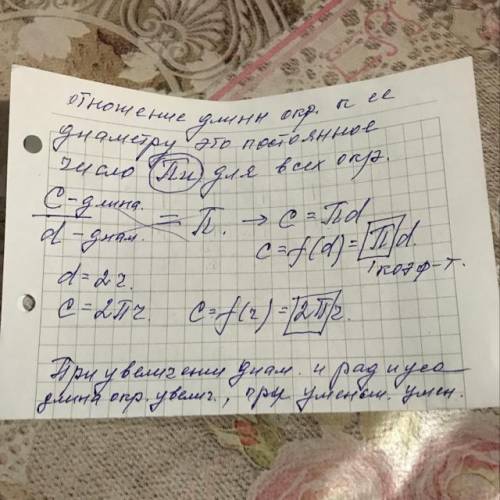 отношение длинн окр. к ее
диаметру это постоянное
число Пи для всех окр.
C-длина. / d-диам. = П. → C = Пd
C = f(d) = П d.
коэф-т.
d = 2r.
C = 2Пr. C = f(r) = 2П r.
При увеличении диам. и радиуса
длина окр. увелич., при уменьш. умен.